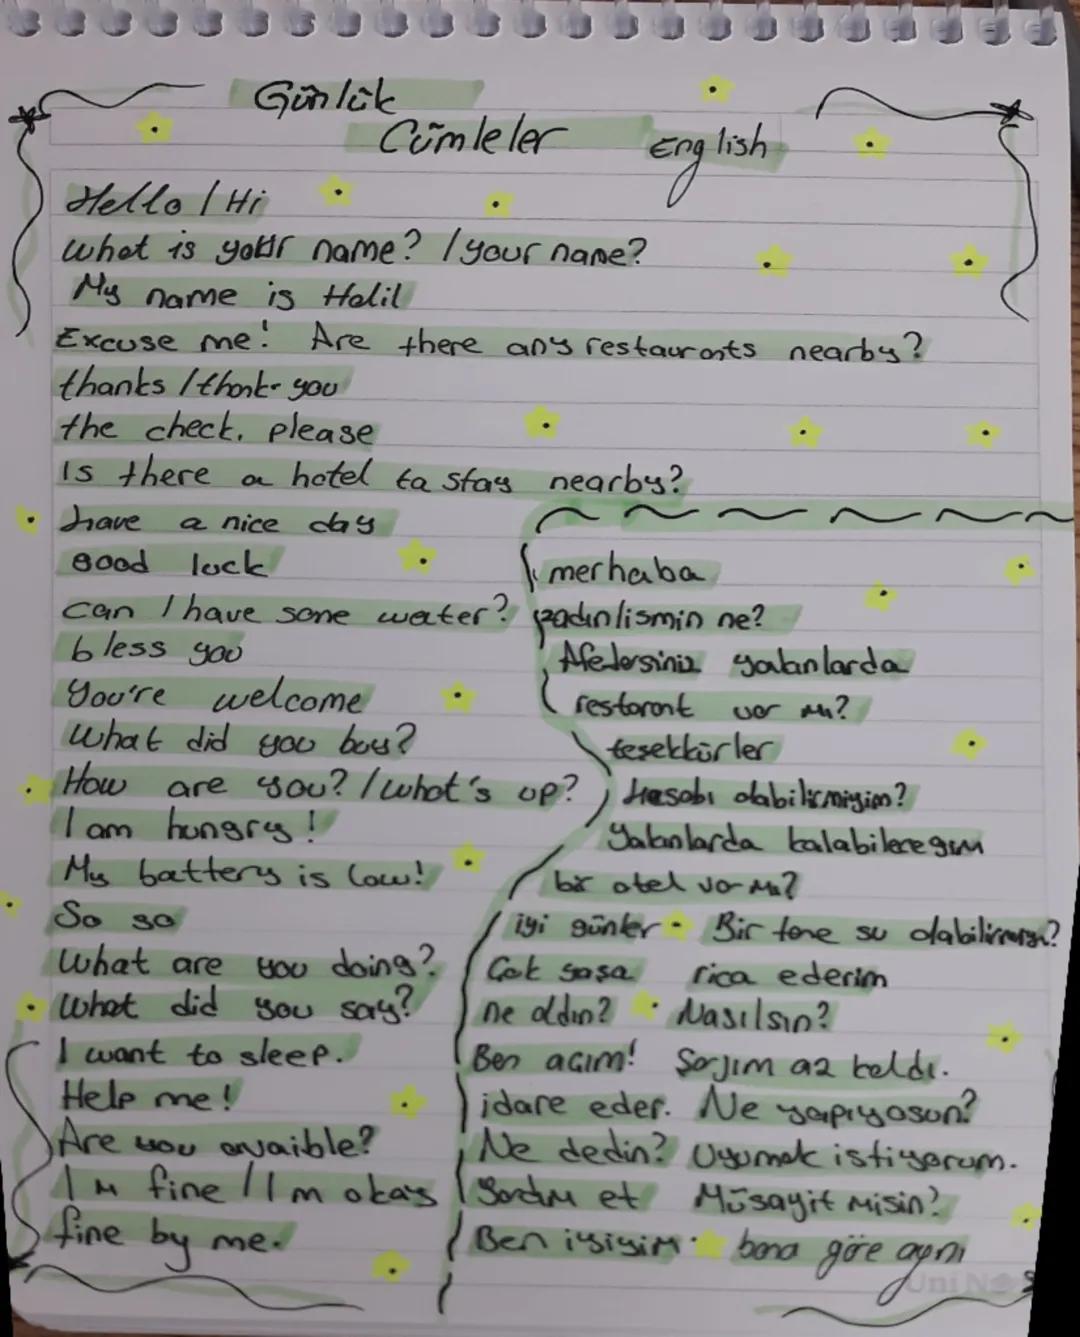 Günlük
Cümleler English
Hello / Hi
what is your name? / your name?
My name is Halil
Excuse me! Are there any restaurants nearby?
thanks / thank you
the check, please
Is there a hotel ta stay nearby?
have a nice day
good luck
can I have some water?
bless you
You're welcome
What did you buy?
How are you? / what's up?
I am hungry!
My battery is low!
So so
What are you doing?
What did you say?
I want to sleep.
Help me!
Are you avaible?
I'm fine / I'm okay
fine by me.
merhaba
adın/ismin ne?
Afedersiniz yakınlarda
restorant var mı?
teşekkürler
Hesabı alabilirmiyim?
Yakınlarda kalabileceğim
bir otel var mı?
iyi günler Bir tane su alabilirmiyim?
Çok yaşa rica ederim
ne aldın? Nasılsın?
Ben açım! Şarjım az kaldı.
idare eder. Ne yapıyosun?
Ne dedin? Uyumak istiyorum.
Yardım et Müsayit misin?
Ben iyiyim bana göre aynı